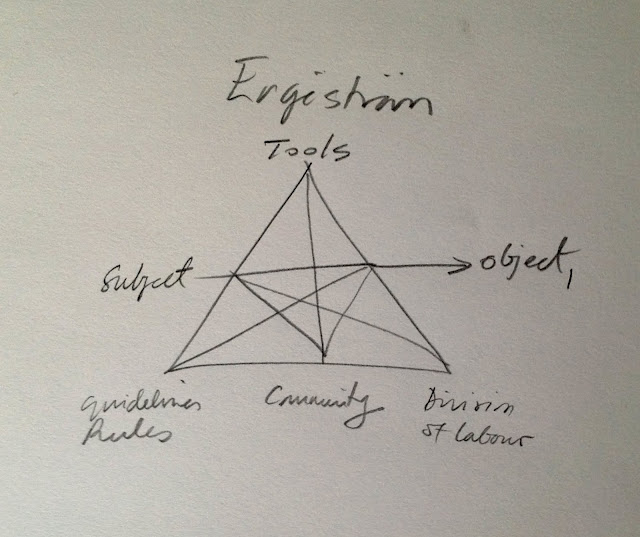 Engeström
Tools
Subject
object,
guidelines
Rules
Community
Division
of labour